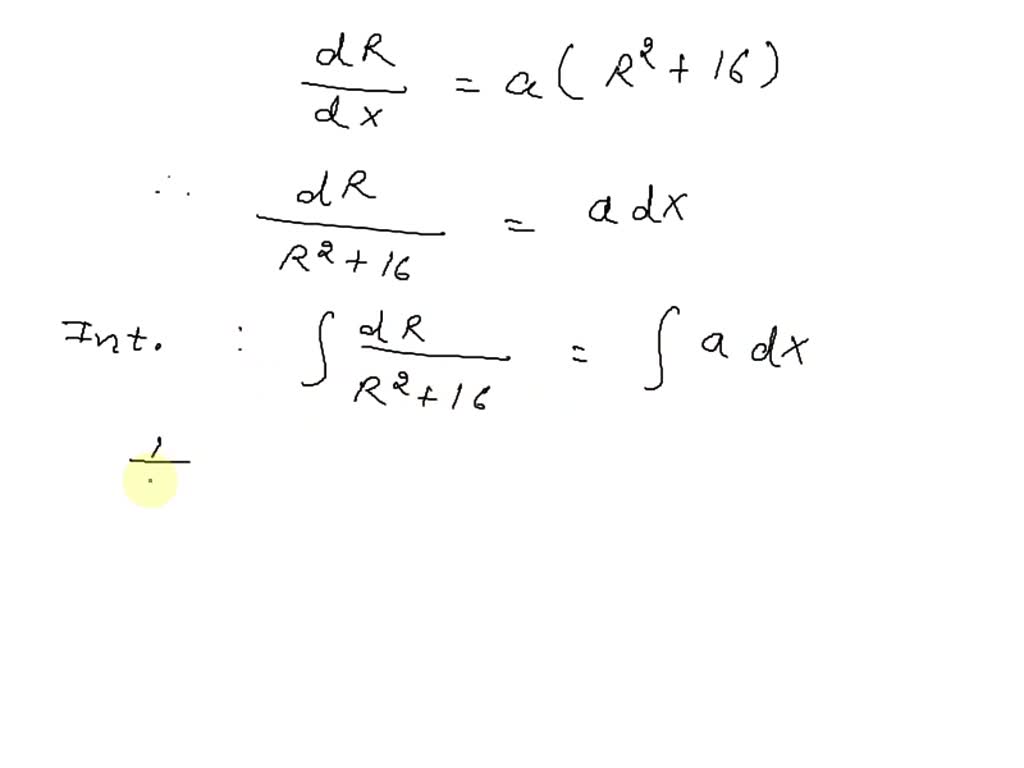 dR/dx = a(R²+16)
∴ dR/(R²+16) = a dx
Int. : ∫ dR/(R²+16) = ∫ a dx
1/